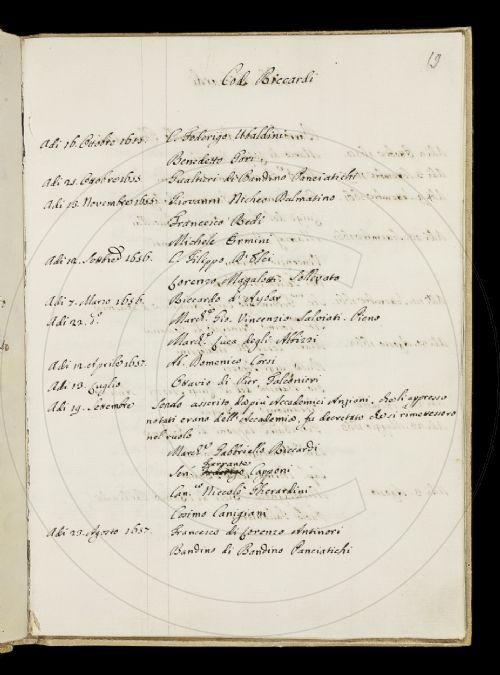 19
Cod. Riccardi
Adi 16. Ottobre 1655. C. Federigo Ubaldini
Benedetto Gori
Adi 21. Ottobre 1655 Gualtieri di Bandino Panciatichi
Adi 18. Novembre 1655. Giovanni Nicheo Dalmatino
Francesco Redi
Michele Ermini
Adi 12. 1656. C. Filippo d'Elci
Lorenzo Magalotti. Sollevato
Adi 7. Marzo 1656. Riccardo d'
Adi 22. d.º March.e Gio. Vincenzio Salviati. Pieno
March.e Luca degli Albizzi
Adi 12. Aprile 1657. Al. Domenico Corsi
Adi 13. Luglio Ottavio di Pier. Falconieri
Adi 19. Settembre Sendo asserito da più Accademici Anziani, che li appresso
notati erano dell'Accademia, fu decretato che si rimettessero
nel ruolo
March.e Gabbriello Riccardi
Ferrante
Sen. Capponi
Can.co Niccolò Gherardini
Cosimo Canigiani
Adi 23. Agosto 1657. Francesco di Lorenzo Antinori
Bandino di Bandino Panciatichi